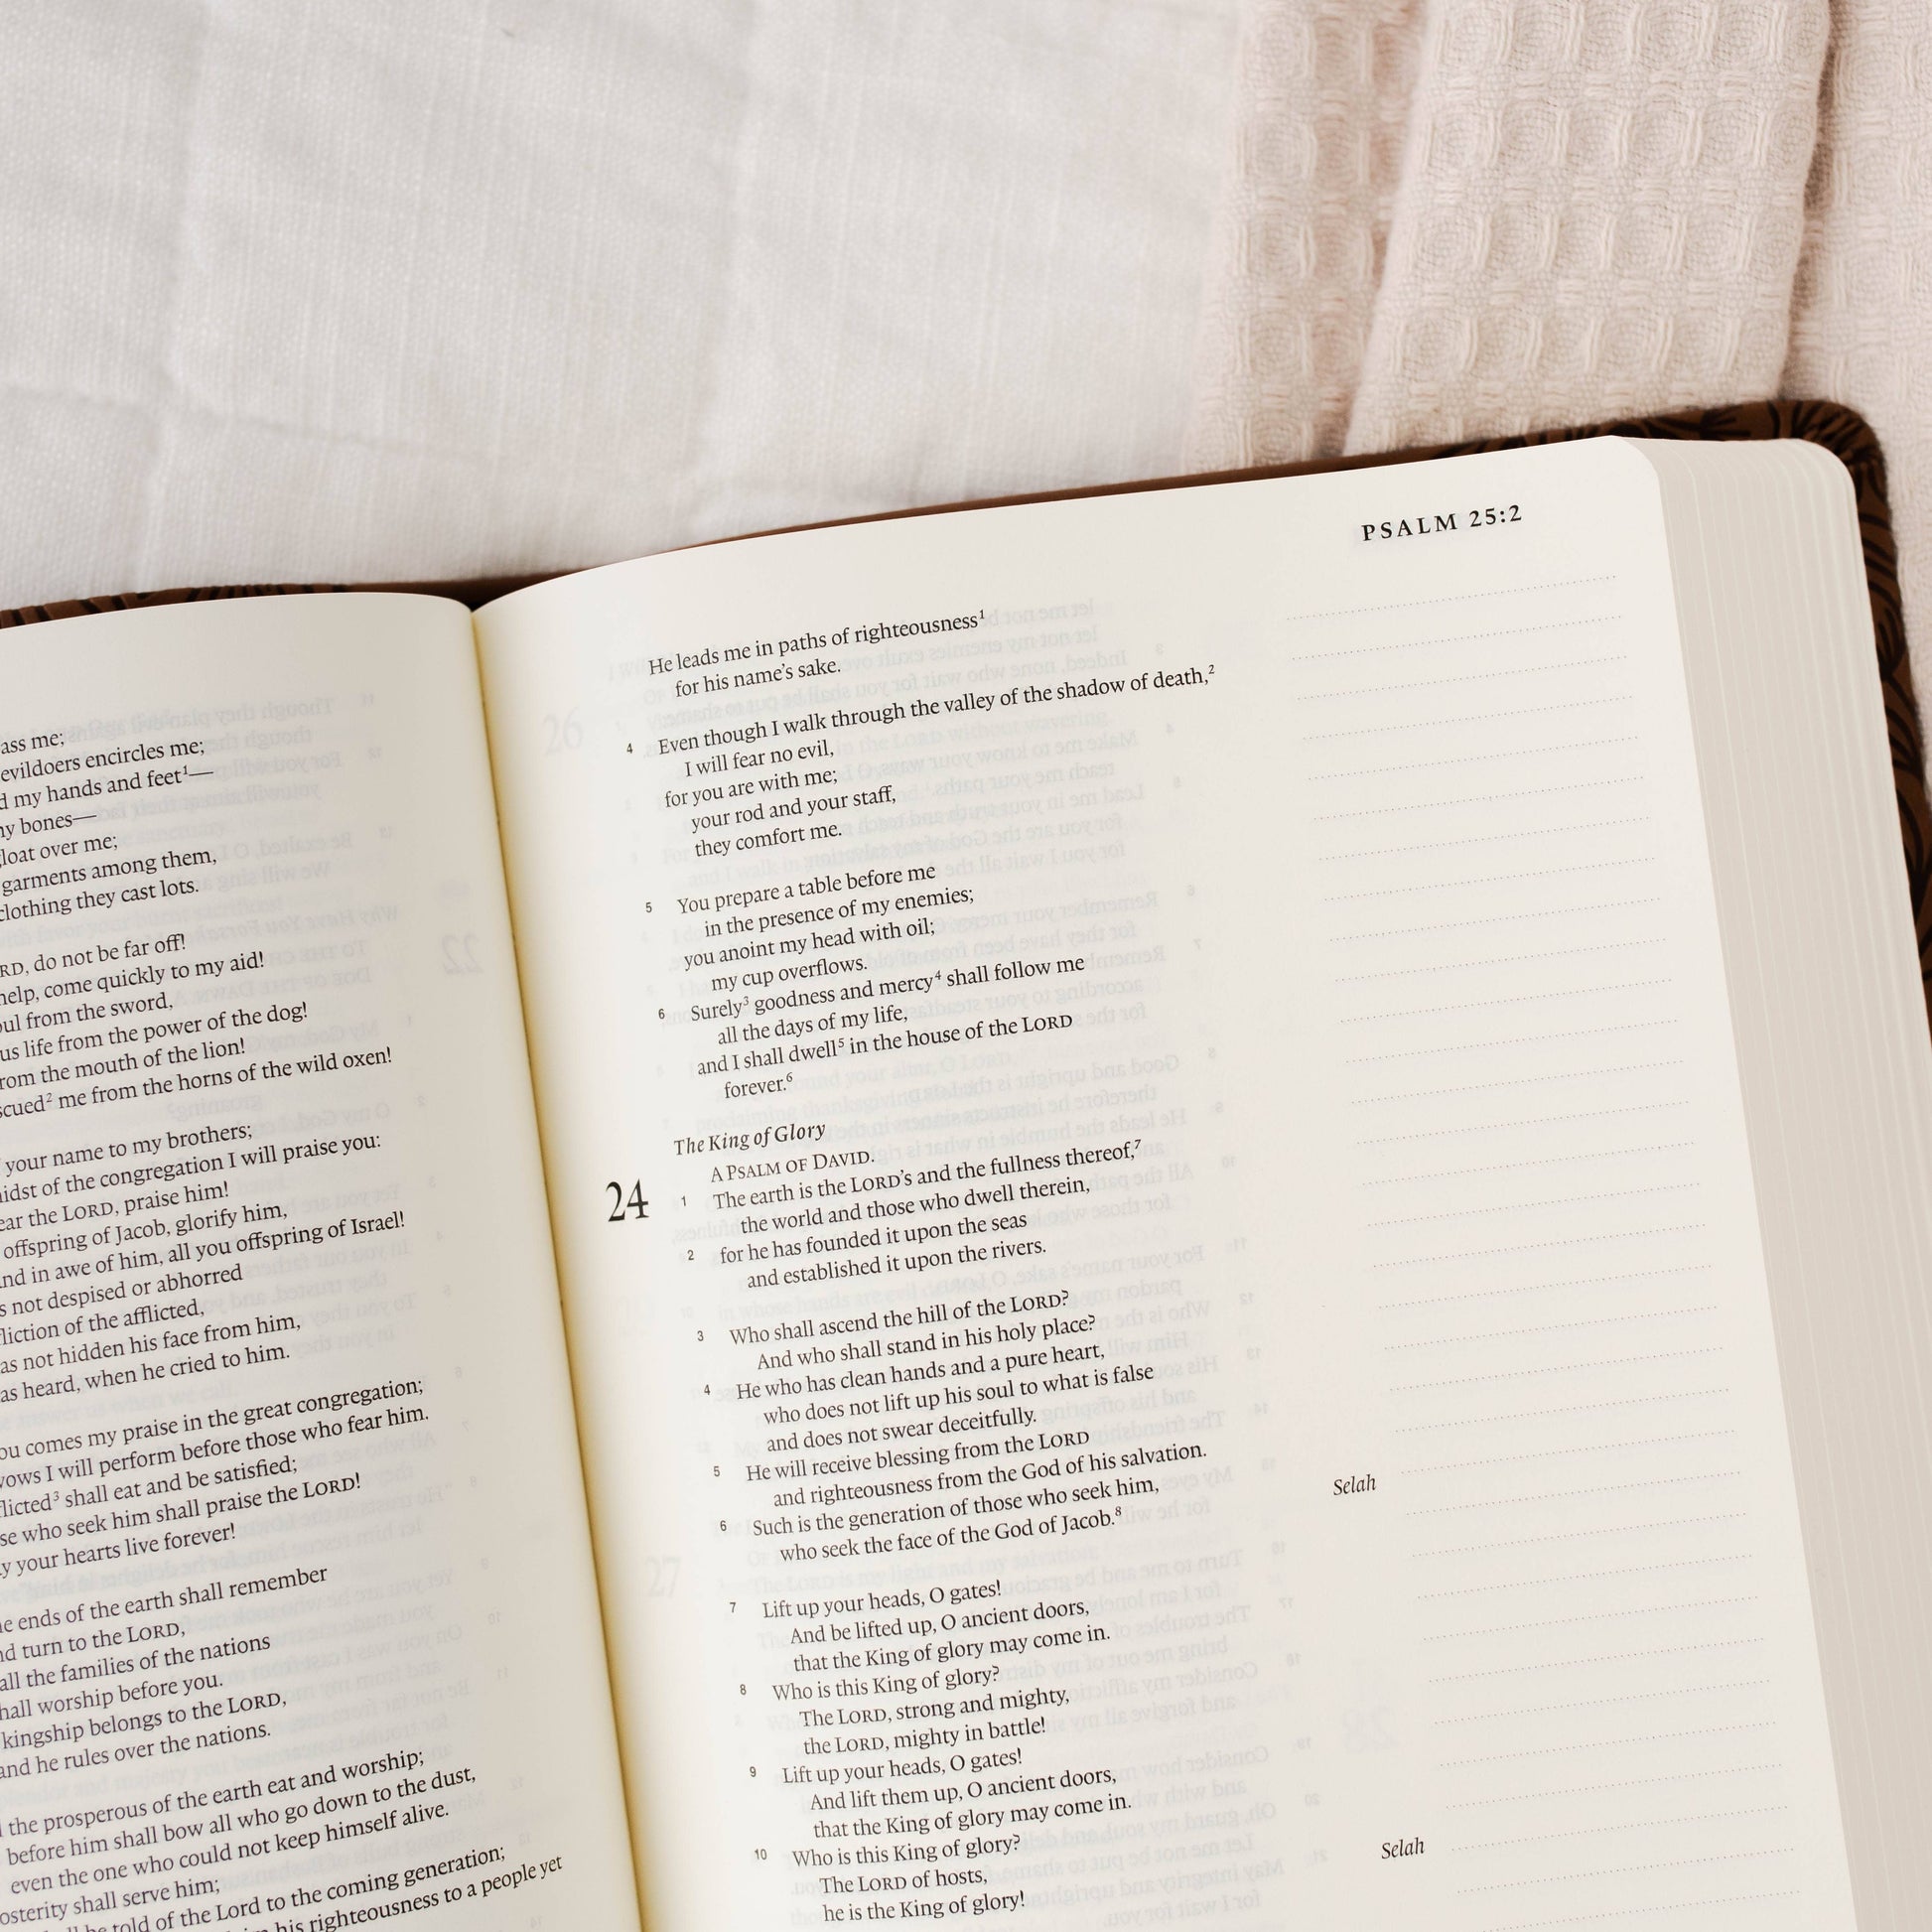 ass me;
evildoers encircles me;
my hands and feet¹—
bones—
gloat over me;
garments among them,
clothing they cast lots.
do not be far off!
help, come quickly to my aid!
from the sword,
life from the power of the dog!
from the mouth of the lion!
² me from the horns of the wild oxen!
your name to my brothers;
of the congregation I will praise you:
the LORD, praise him!
offspring of Jacob, glorify him,
in awe of him, all you offspring of Israel!
not despised or abhorred
of the afflicted,
not hidden his face from him,
heard, when he cried to him.
comes my praise in the great congregation;
vows I will perform before those who fear him.
³ shall eat and be satisfied;
who seek him shall praise the LORD!
your hearts live forever!
ends of the earth shall remember
turn to the LORD,
all the families of the nations
worship before you.
kingship belongs to the LORD,
and he rules over the nations.
the prosperous of the earth eat and worship;
before him shall bow all who go down to the dust,
even the one who could not keep himself alive.
shall serve him;
told of the Lord to the coming generation;
his righteousness to a people yet
PSALM 25:2
He leads me in paths of righteousness¹
for his name's sake.
4 Even though I walk through the valley of the shadow of death,²
I will fear no evil,
for you are with me;
your rod and your staff,
they comfort me.
5 You prepare a table before me
in the presence of my enemies;
you anoint my head with oil;
my cup overflows.
6 Surely³ goodness and mercy⁴ shall follow me
all the days of my life,
and I shall dwell⁵ in the house of the LORD
forever.⁶
The King of Glory
A PSALM OF DAVID.
24 1 The earth is the LORD's and the fullness thereof,⁷
the world and those who dwell therein,
2 for he has founded it upon the seas
and established it upon the rivers.
3 Who shall ascend the hill of the LORD?
And who shall stand in his holy place?
4 He who has clean hands and a pure heart,
who does not lift up his soul to what is false
and does not swear deceitfully.
5 He will receive blessing from the LORD
and righteousness from the God of his salvation.
6 Such is the generation of those who seek him,
who seek the face of the God of Jacob.⁸ Selah
7 Lift up your heads, O gates!
And be lifted up, O ancient doors,
that the King of glory may come in.
8 Who is this King of glory?
The LORD, strong and mighty,
the LORD, mighty in battle!
9 Lift up your heads, O gates!
And lift them up, O ancient doors,
that the King of glory may come in.
10 Who is this King of glory?
The LORD of hosts,
he is the King of glory! Selah